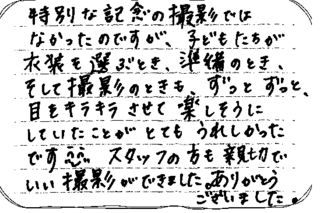 特別な記念の撮影では
なかったのですが、子どもたちが
衣装を選ぶとき、準備のとき、
そして撮影のときも、ずっと ずっと、
目をキラキラ させて 楽しそうに
していたことが とても うれしかった
です スタッフの方も 親切で
いい撮影ができました。ありがとう
ございました。